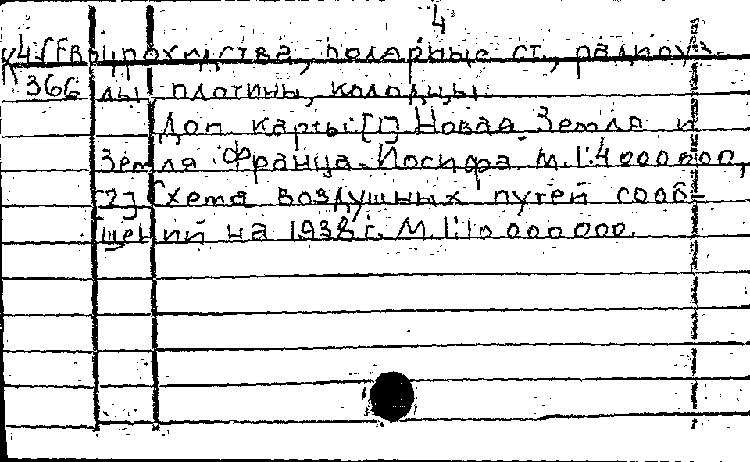 4
пароходства, полярные ст., радиоуз-
366 лы, плотины, колодцы.
Доп. карты: [1] Новая Земля и
Земля Франца-Иосифа М. 1:4 000 000,
[2] Схема воздушных путей сооб-
щений на 1938 г. М. 1:10 000 000.